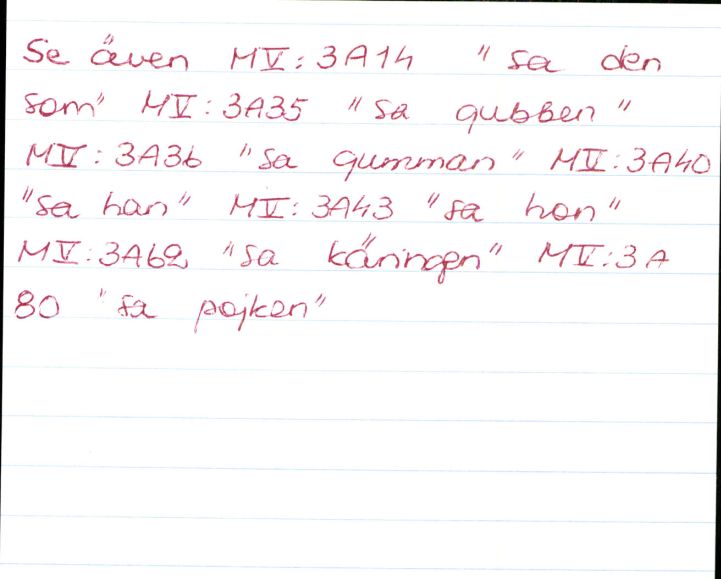 Se även MV: 3A14 "sa den
som" MV: 3A35 "sa gubben"
MV: 3A36 "sa gumman" MV: 3A40
"sa han" MV: 3A43 "sa hon"
MV: 3A62 "sa käringen" MV: 3A
80 "sa pojken"